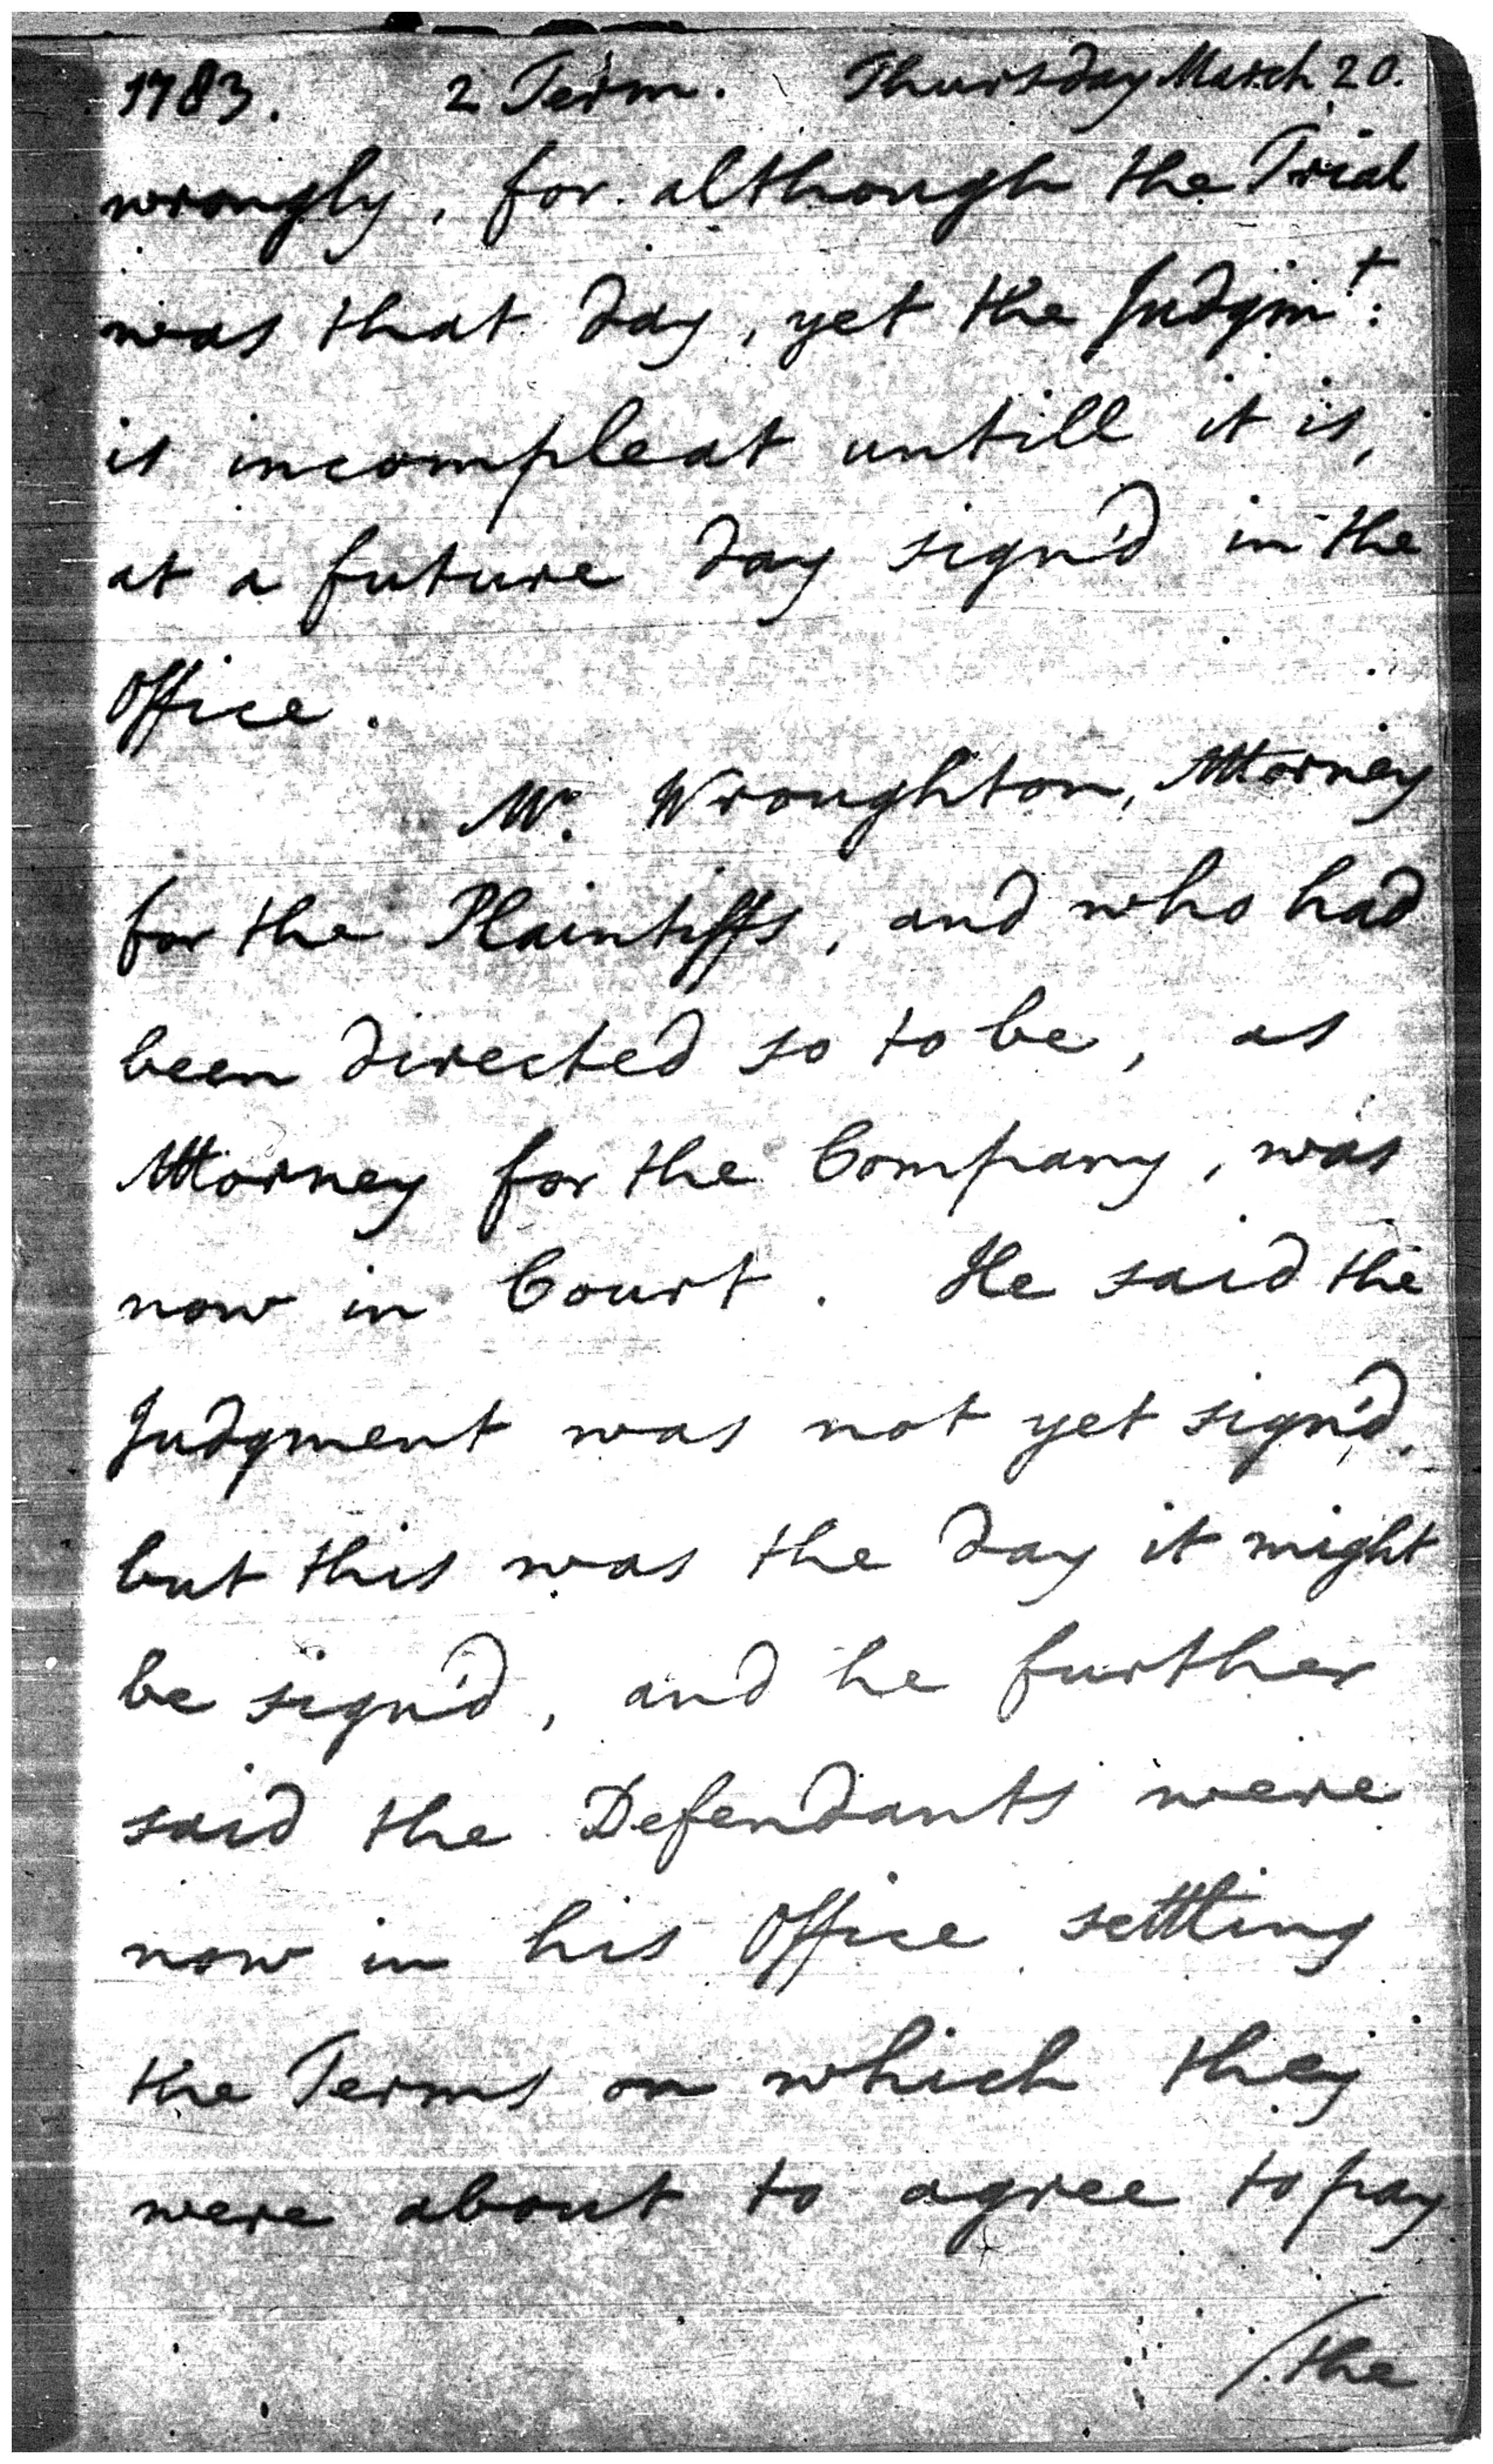 1783. 2 Term. Thursday March 20.
wrongly, for although the Trial
was that day, yet the Judgmt:
is incompleat untill it is,
at a future day sign'd in the
Office.
Mr. Wroughton, Attorney
for the Plaintiffs, and who had
been directed so to be, as
Attorney for the Company, was
now in Court. He said the
Judgment was not yet sign'd,
but this was the day it might
be sign'd, and he further
said the Defendants were
now in his Office settling
the Terms on which they
were about to agree to pay
/the